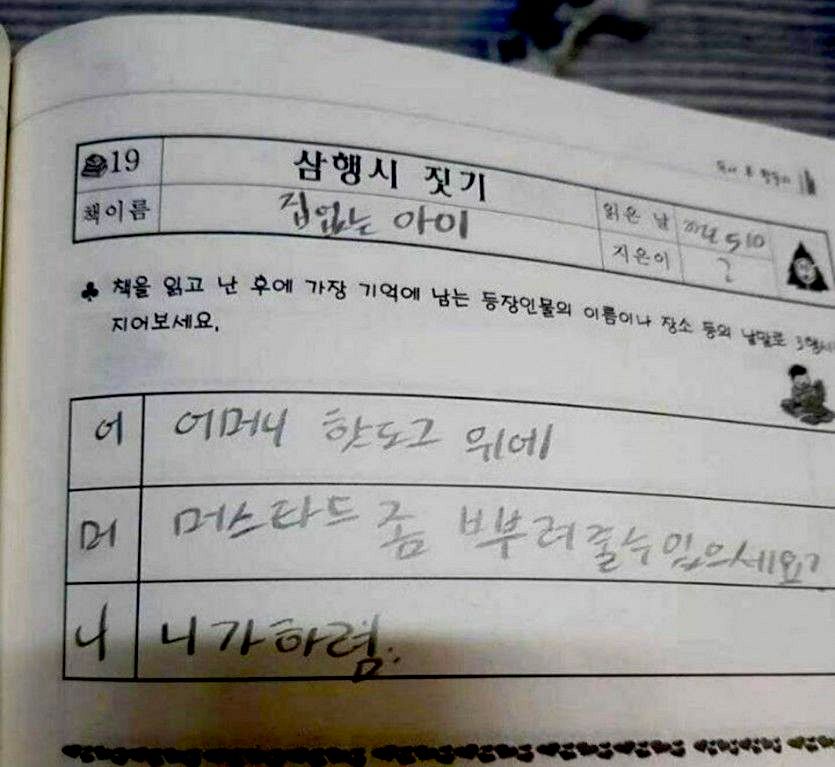 19 삼행시 짓기
책이름 집없는 아이
읽은 날 510
지은이 ?
책을 읽고 난 후에 가장 기억에 남는 등장인물의 이름이나 장소 등의 낱말로 3행시
지어보세요.
어 어머니 핫도그 위에
머 머스타드 좀 뿌부려줄수있으세요?
니 니가하렴.